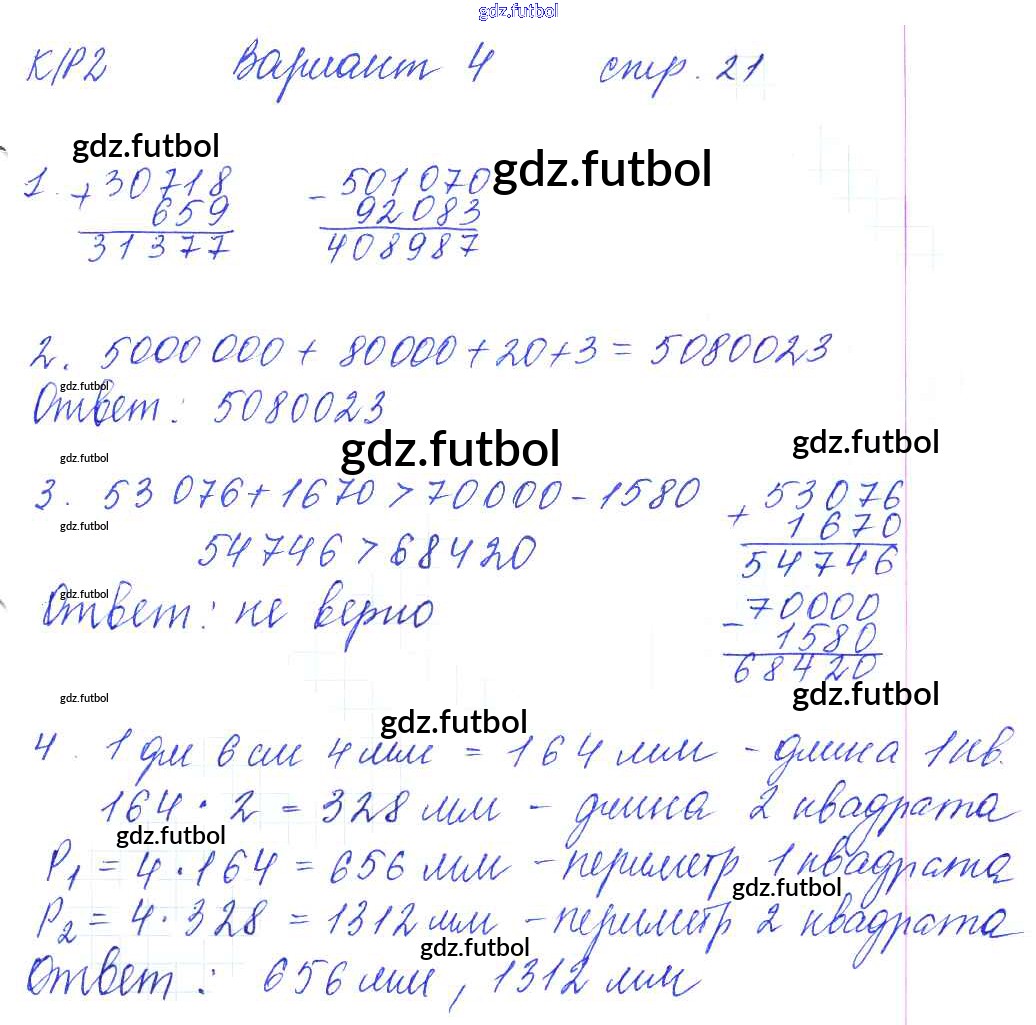 gdz.futbol
К/Р2 Вариант 4 стр. 21
gdz.futbol
gdz.futbol
1. + 30718 - 501070
659 92083
31377 408987
2. 5000 000 + 80000 + 20 + 3 = 5080023
gdz.futbol
Ответ: 5080023
gdz.futbol gdz.futbol
gdz.futbol
3. 53 076 + 1670 > 70000 - 1580 53076
gdz.futbol + 1670
54746 > 68420 54746
gdz.futbol
Ответ: не верно - 70000
1580
68420
gdz.futbol gdz.futbol
gdz.futbol
4. 1 дм 6 см 4 мм = 164 мм - длина 1 кв.
164 · 2 = 328 мм - длина 2 квадрата
gdz.futbol
P1 = 4 · 164 = 656 мм - периметр 1 квадрата
gdz.futbol
P2 = 4 · 328 = 1312 мм - периметр 2 квадрата
gdz.futbol
Ответ: 656 мм, 1312 мм